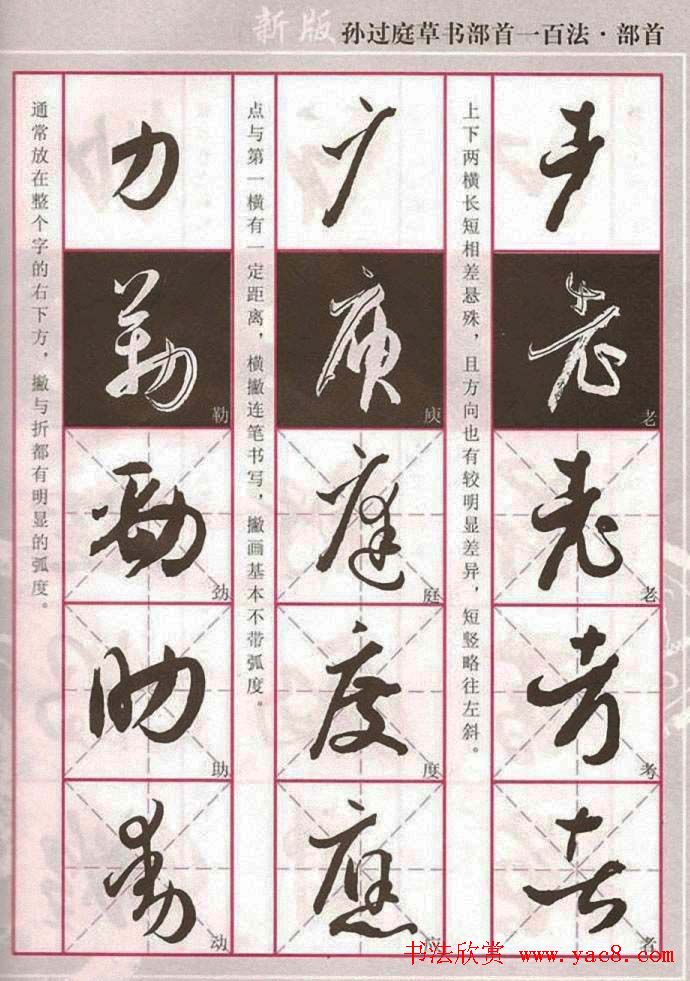 新版 孙过庭草书部首一百法·部首
耂
老
老
考
者
上下两横长短相差悬殊，且方向也有较明显差异，短竖略往左斜。
广
庭
度
应
点与第一横有一定距离，横撇连笔书写，撇画基本不带弧度。
力
勒
劲
助
动
通常放在整个字的右下方，撇与折都有明显的弧度。
书法欣赏 www.yac8.com